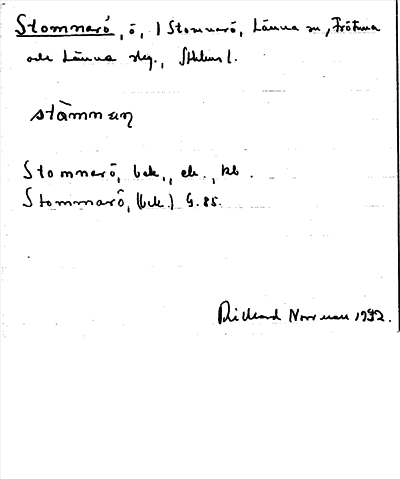 Stomnarö, ö, i Stomnarö, Länna sn, Frötuna
och Länna skg., Sthlms l.
stàmnaɳ
Stomnarö, bek., ek., kb.
Stommarö, (bek.) G. 85.
Rickard Norrman 1932.